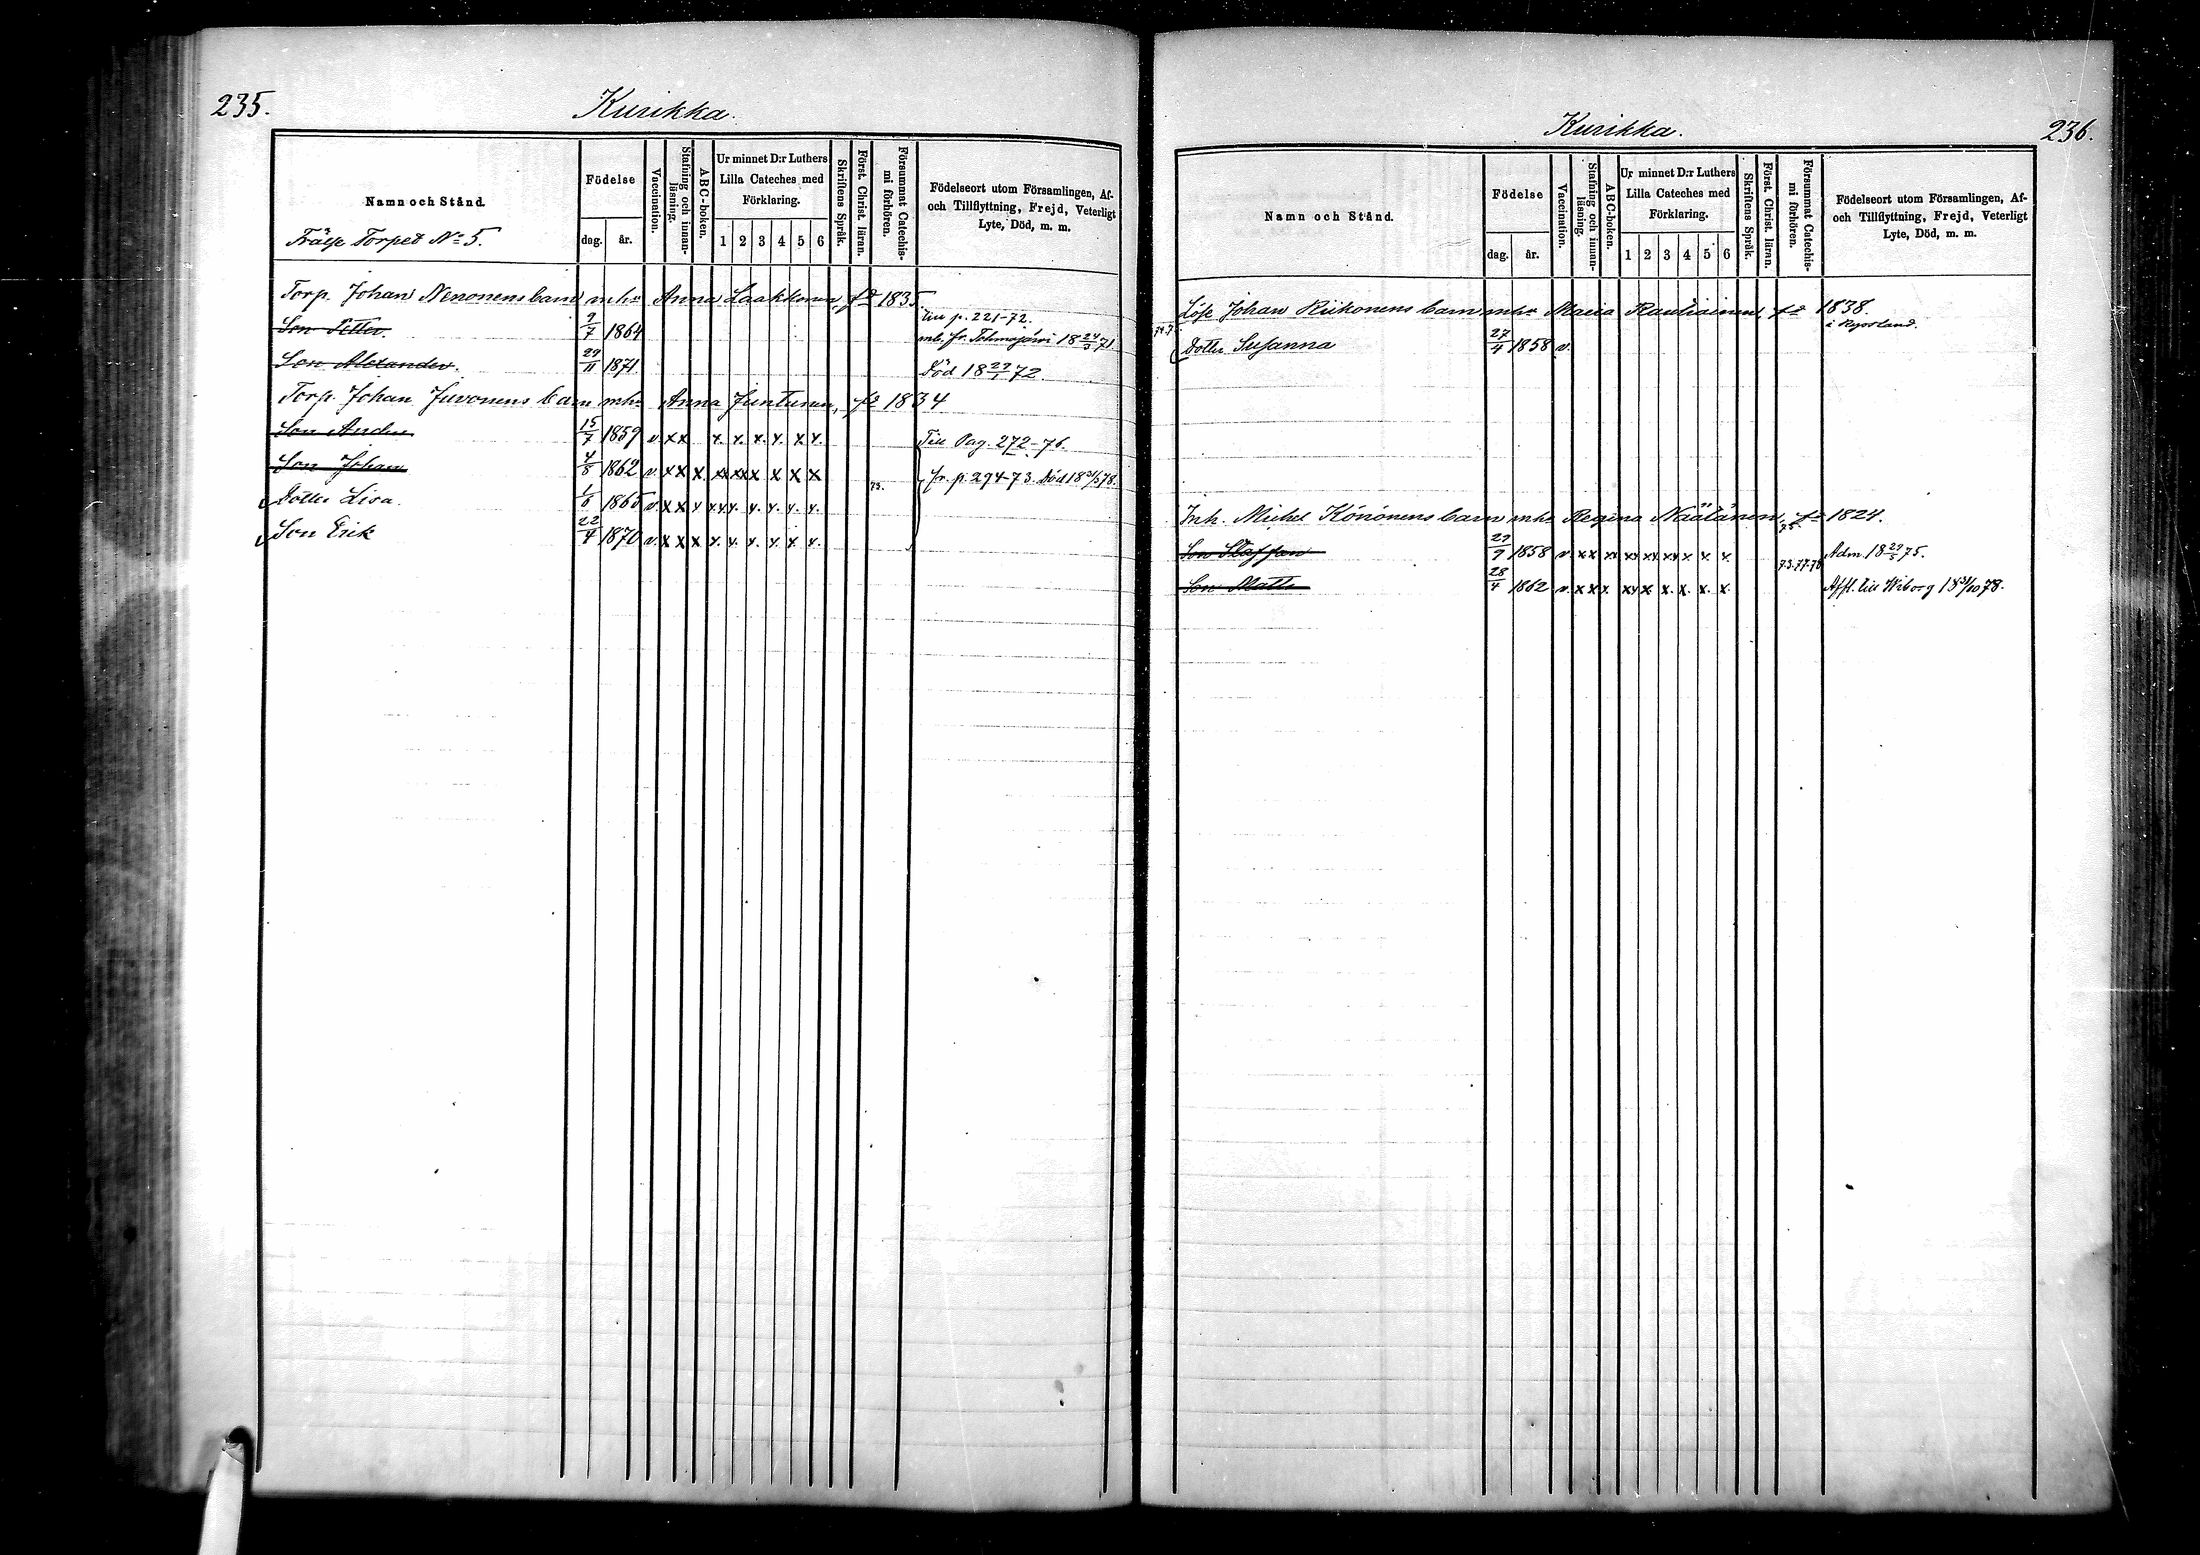 235.
Kurikka.
Namn och Stånd.
Födelse
dag. år.
Vaccination.
Stafning och innanläsning.
ABC-boken.
Ur minnet D:r Luthers Lilla Cateches med Förklaring.
1 2 3 4 5 6
Skriftens Språk.
Först. Christ. läran.
Försummat Catechismi förhören.
Födelseort utom Församlingen, Af- och Tillflyttning, Frejd, Veterligt Lyte, Död, m. m.
Frälse Torpet No 5.
Torp. Johan Nenonens barn mhu Anna Laakkonen, fd 1835.
Son Petter. 9/7 1864 till p. 221-72.
mb. fr. Tohmajärvi 18 24/3 71
Son Alexander. 29/11 1871 Död 18 29/1 72.
Torp. Johan Juvonens barn mhu Anna Juntunen, fd 1834
Son Anders 15/7 1859 v. x x x. x. x. x. x x. Till Pag. 272-76.
Son Johan 4/8 1862 v. x x x xx xx x x x x 73. fr. p. 294-73. Död 18 31/5 78.
Dotter Lisa. 1/6 1865 v. x x x x x x. x. x. x. x.
Son Erik 22/4 1870 v. x x x x. x. x. x. x. x.
Kurikka.
236.
Namn och Stånd.
Födelse
dag. år.
Vaccination.
Stafning och innanläsning.
ABC-boken.
Ur minnet D:r Luthers Lilla Cateches med Förklaring.
1 2 3 4 5 6
Skriftens Språk.
Först. Christ. läran.
Försummat Catechismi förhören.
Födelseort utom Församlingen, Af- och Tillflyttning, Frejd, Veterligt Lyte, Död, m. m.
Löse Johan Riikonens barn mhu Maria Rautiainen, fd 1838.
i Ryssland.
Dotter Susanna 27/4 1858 v.
Inh. Michel Könönens barn mhu Regina Näätänen, fd 1824.
Son Staffan 29/9 1858 v. x x xx xx xx x x x x 75. Adm. 18 29/5 75.
Son Matts 28/4 1862 v. x x x. xx x. x. x. x. x. 73.77.78 Affl. till Wiborg 18 31/10 78.